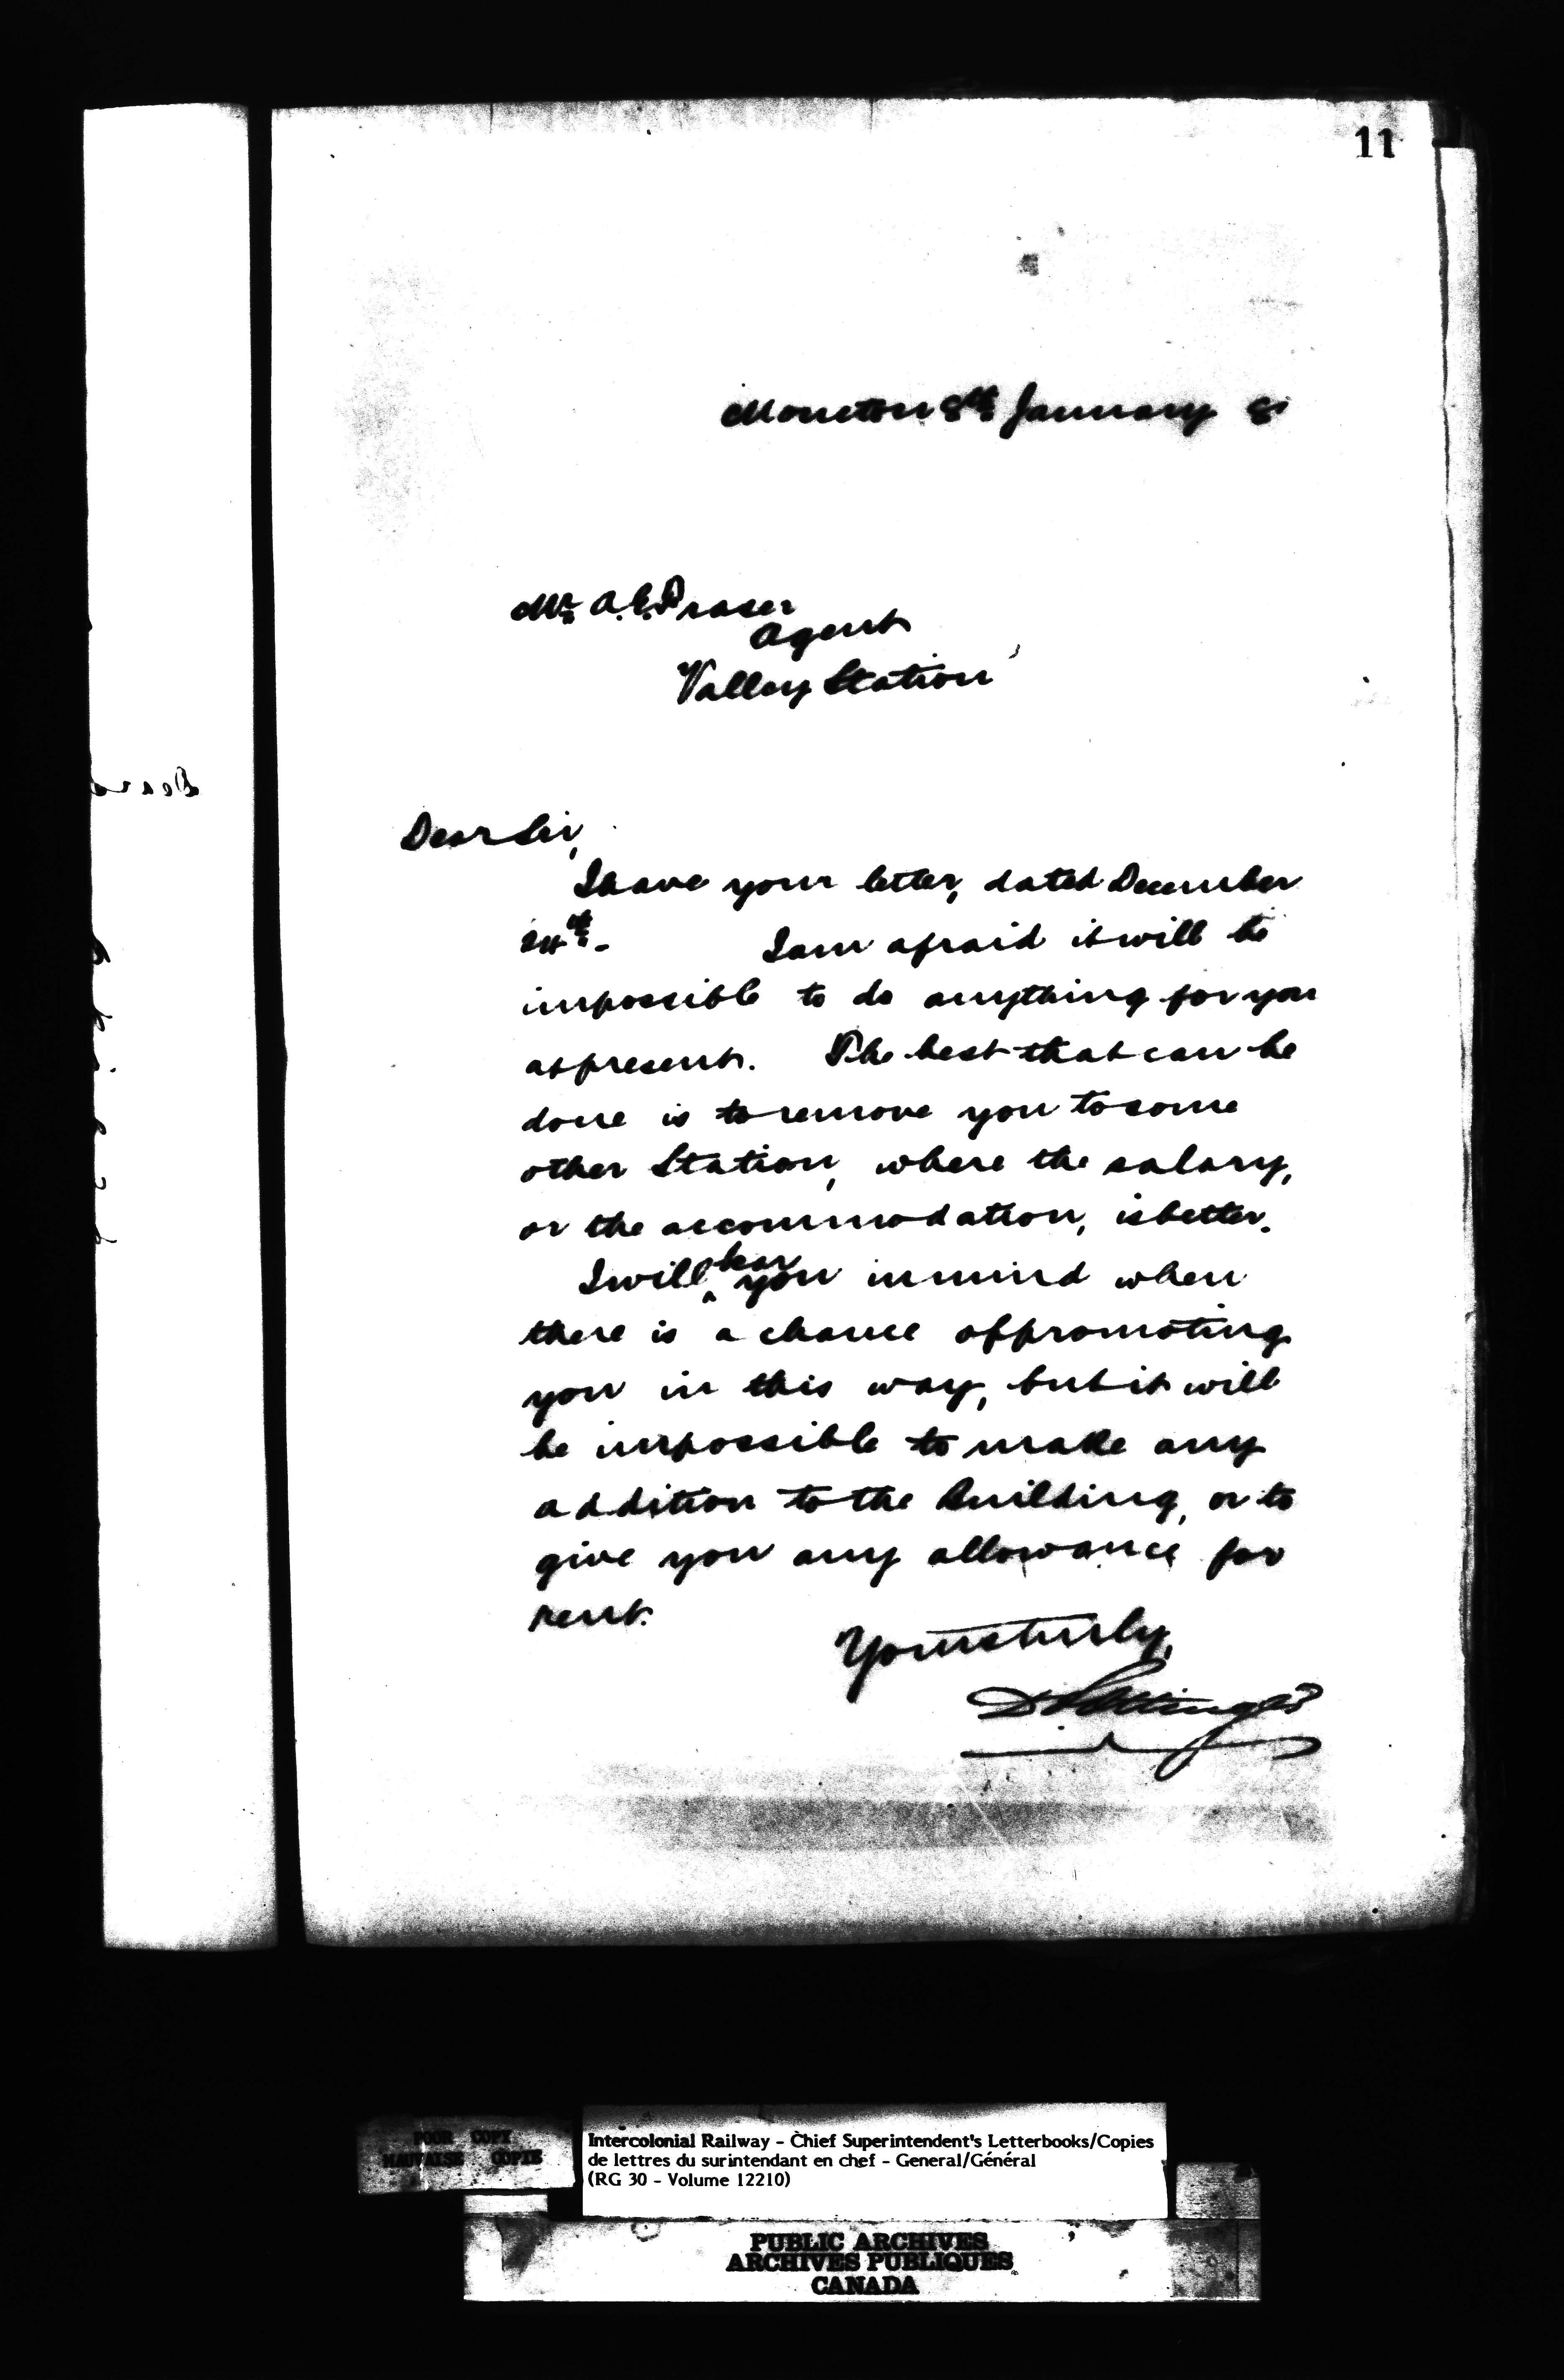 11
Moncton 8th January 81
Mr. A. C. Fraser
Agent
Valley Station
Dear Sir,
I have your letter, dated December
24th. I am afraid it will be
impossible to do anything for you
at present. The best that can be
done is to remove you to some
other Station, where the salary,
or the accommodation, is better.
I will bear you in mind when
there is a chance of promoting
you in this way, but it will
be impossible to make any
addition to the building, or to
give you any allowance for
rent.
Yours truly,
D Pottinger
POOR COPY
MAUVAISE COPIE
Intercolonial Railway - Chief Superintendent's Letterbooks/Copies
de lettres du surintendant en chef - General/Général
(RG 30 - Volume 12210)
PUBLIC ARCHIVES
ARCHIVES PUBLIQUES
CANADA